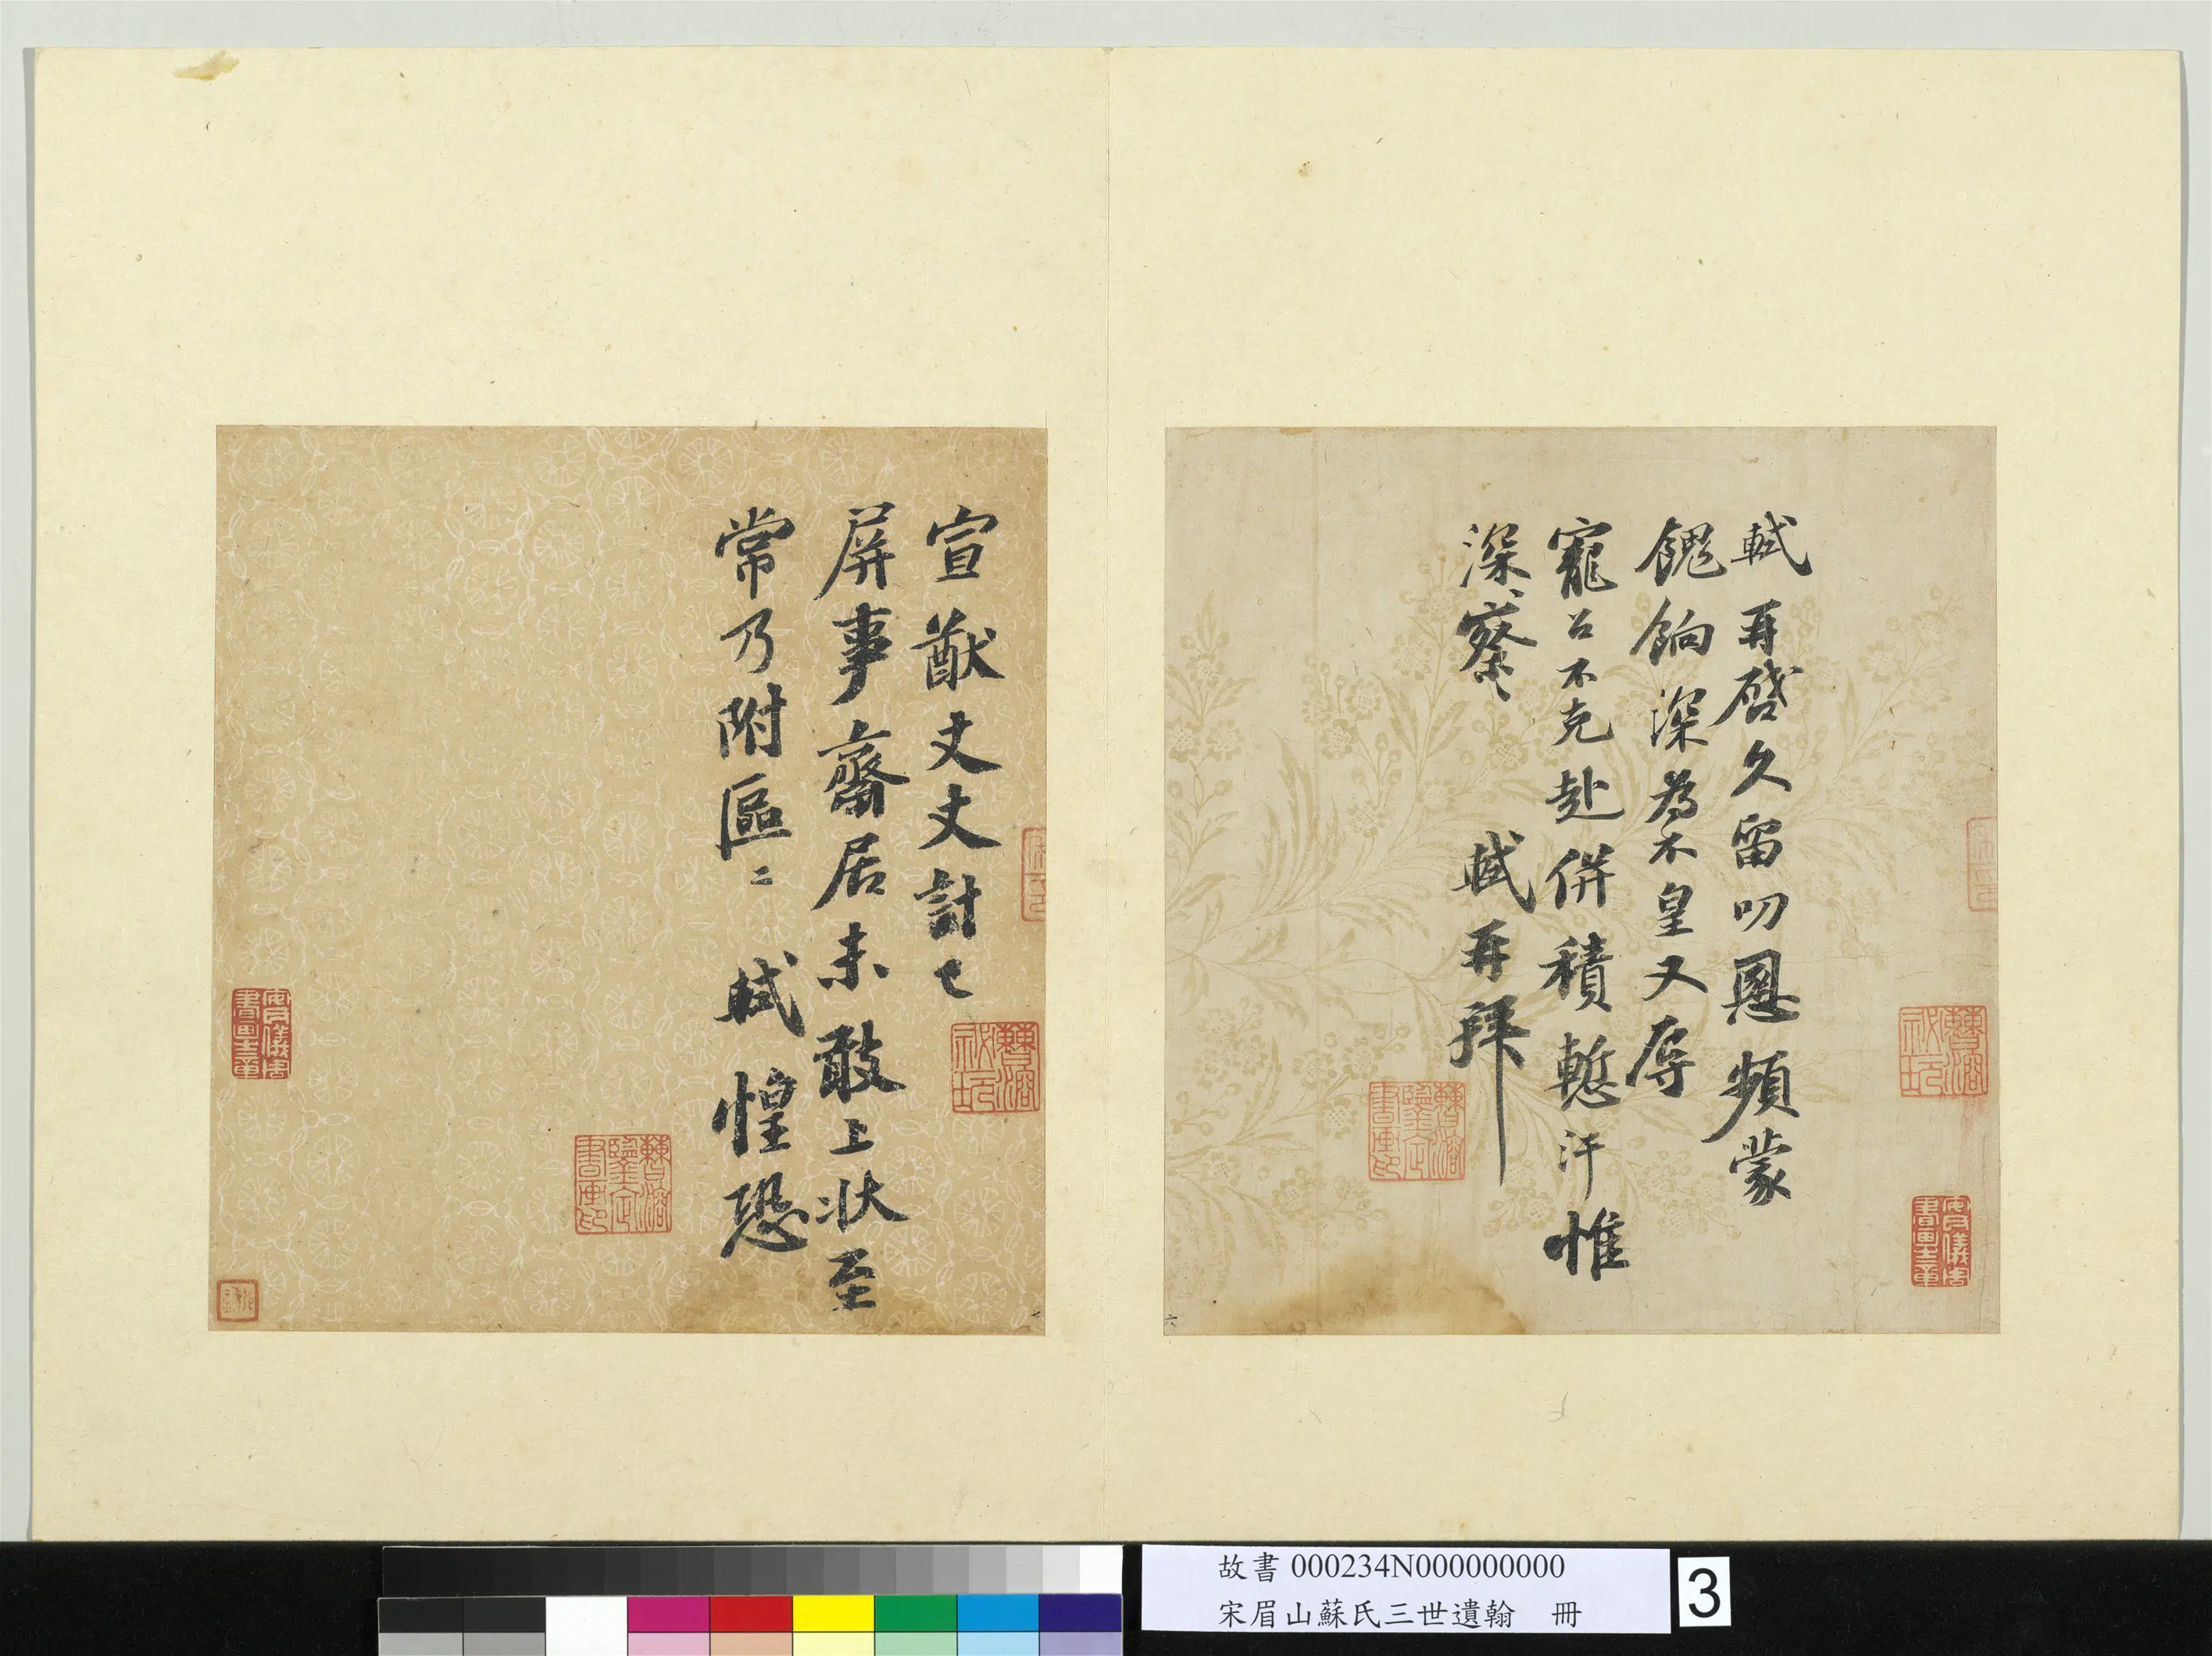 軾再啓久留叨恩頻蒙
餽餉深為不皇又辱
寵召不克赴併積慙汗惟
深察 軾再拜
宣猷丈丈計已
屏事齋居未敢上狀至
常乃附區〻軾惶恐
故書 000234N000000000
宋眉山蘇氏三世遺翰 冊
3